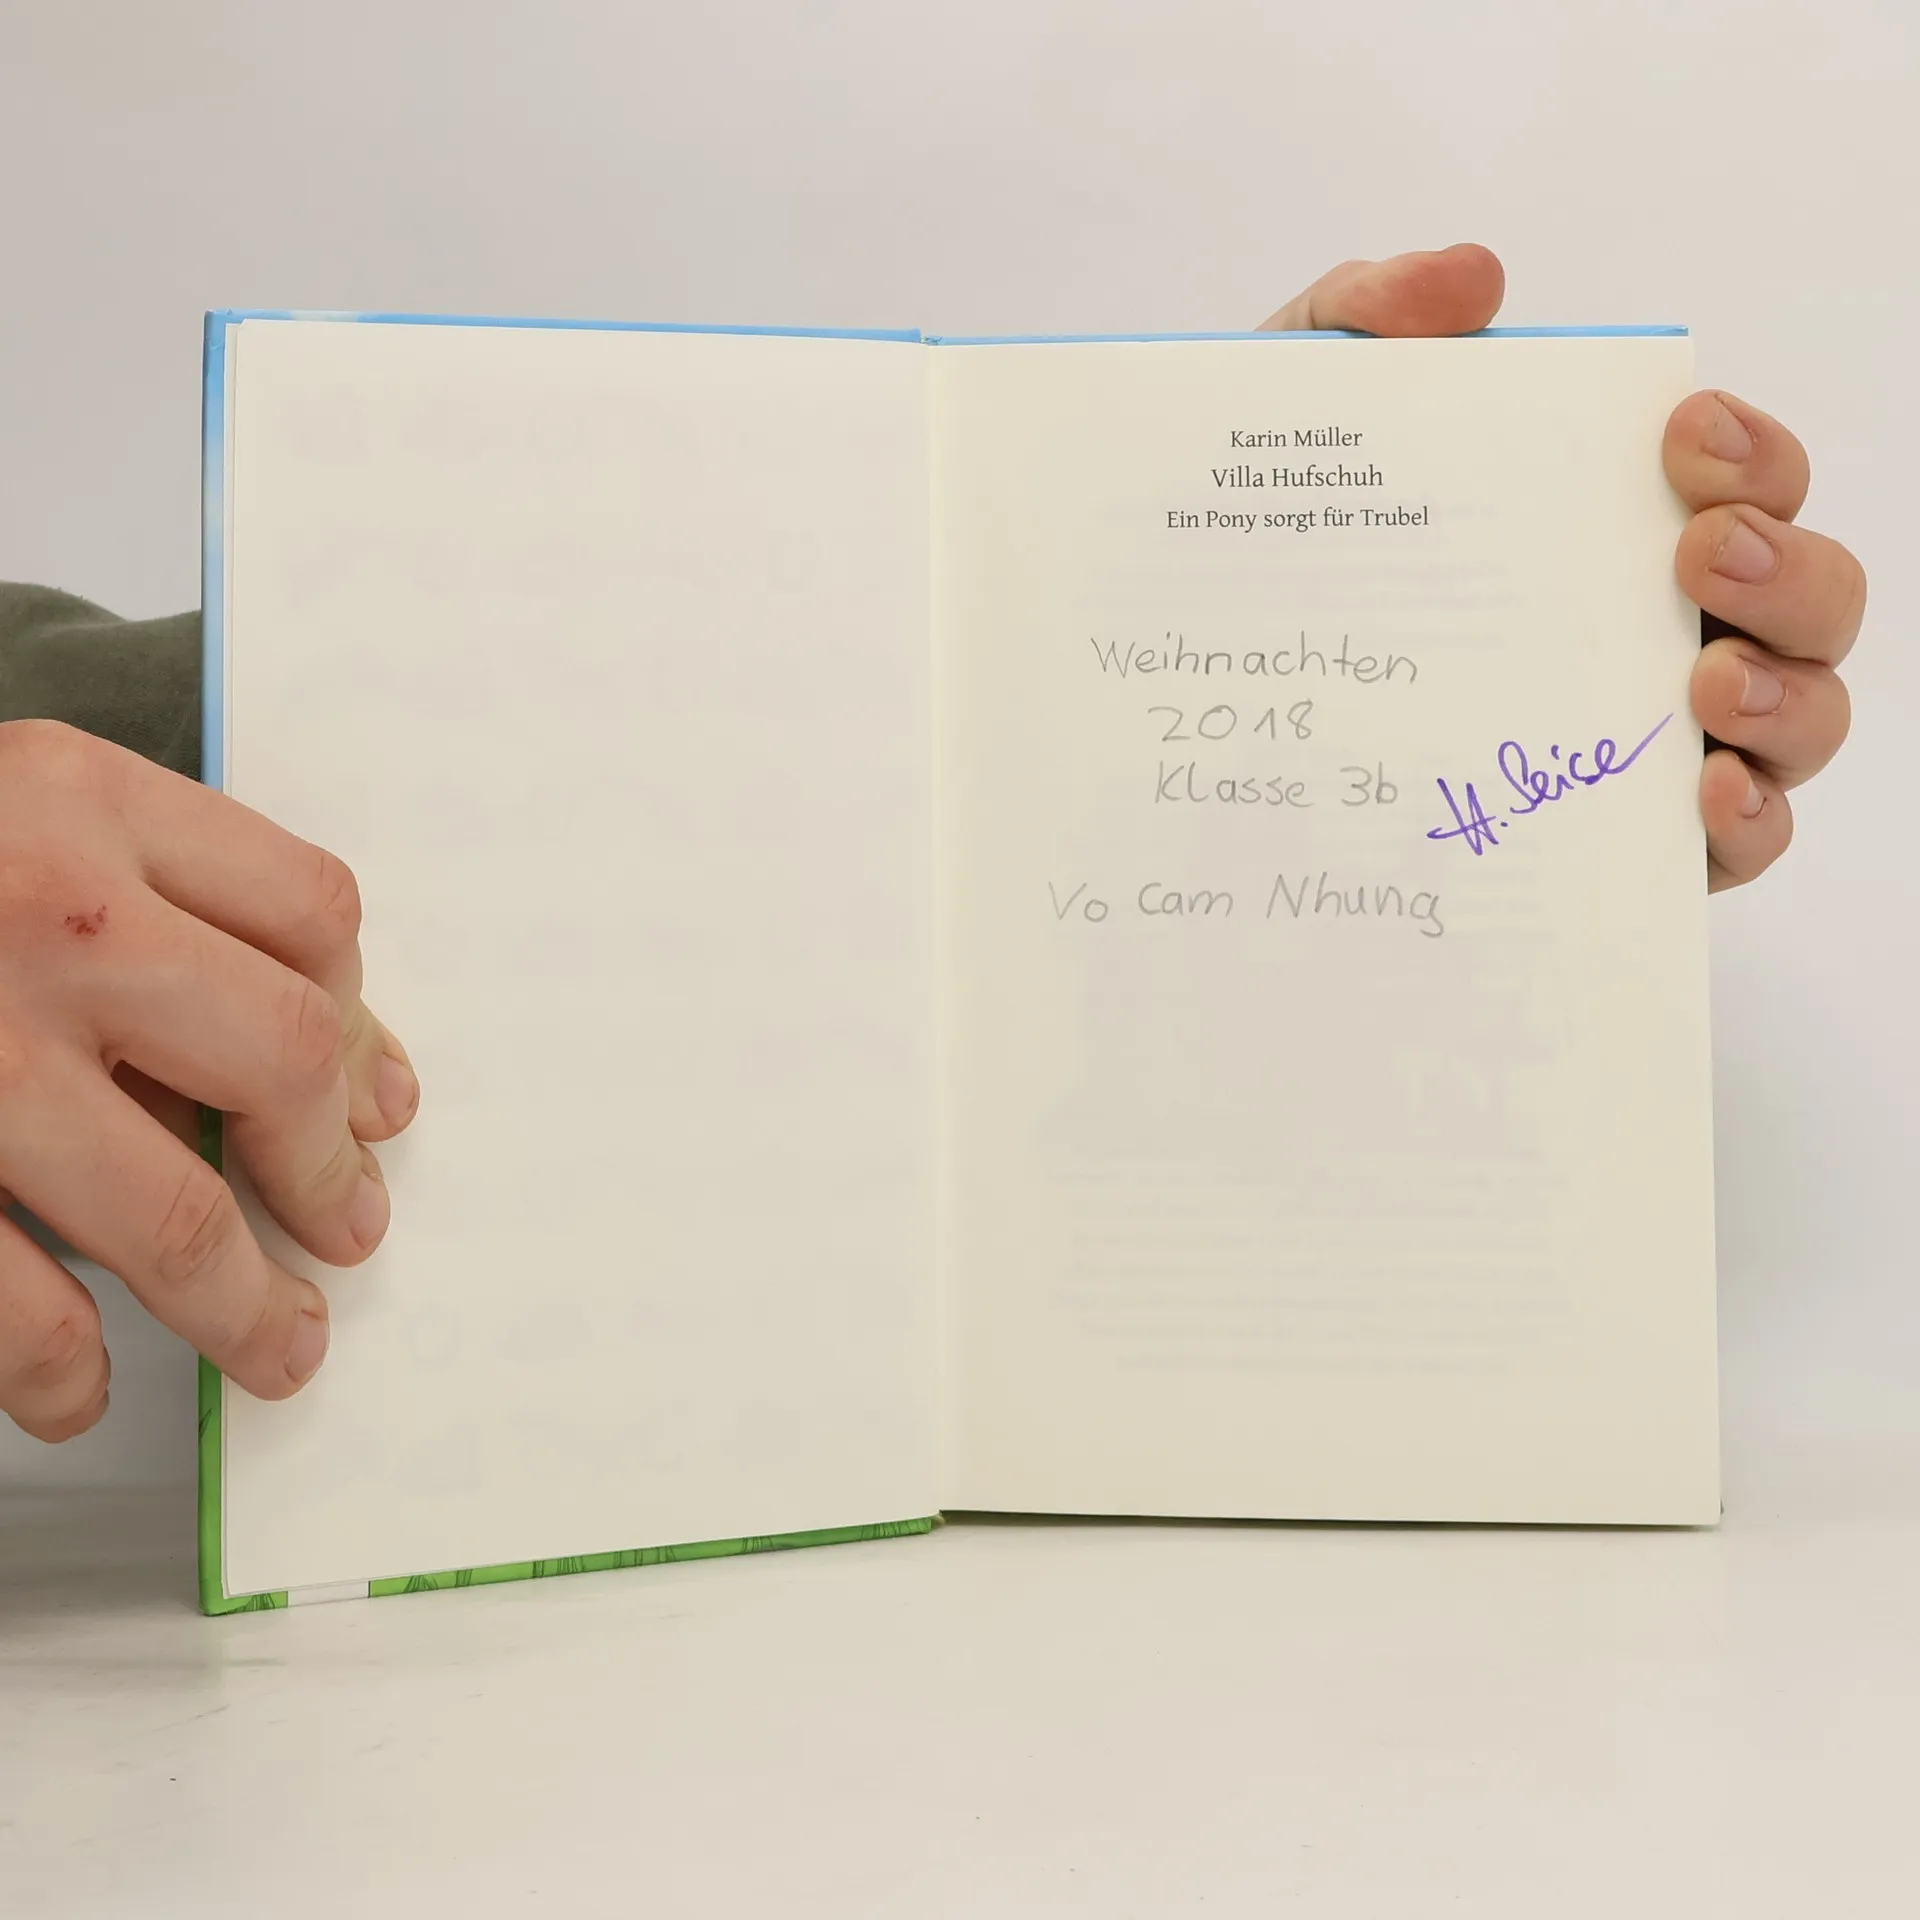 Karin Müller
Villa Hufschuh
Ein Pony sorgt für Trubel
Weihnachten
2018
Klasse 3b
H.
Vo Cam Nhung